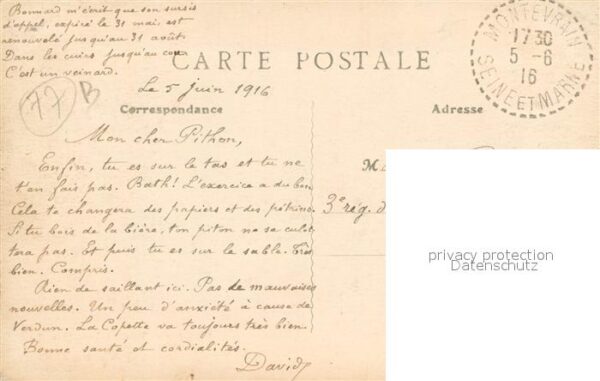 Bonnard m'écrit que son sursis
d'appel, expiré le 31 mai, est
renouvelé jusqu'au 31 août.
Dans les cuirs jusqu'au cou
C'est un veinard.
CARTE POSTALE
MONTEVRAIN
17 30
5 - 6
16
SEINE ET MARNE
77
B
Le 5 juin 1916
Correspondance
Adresse
Mon cher Pithon,
Enfin, tu es sur le tas et tu ne
t'en fais pas. Bath! L'exercice a du bon
Cela te changera des papiers et des pétrins.
Si tu bois de la bière, ton piton ne se culot
tera pas. Et puis tu es sur le sable. Très
bien. Compris.
Rien de saillant ici. Pas de mauvaises
nouvelles. Un peu d'anxiété à cause de
Verdun. La Copette va toujours très bien.
Bonne santé et cordialités.
David
3e rég. d
privacy protection
Datenschutz